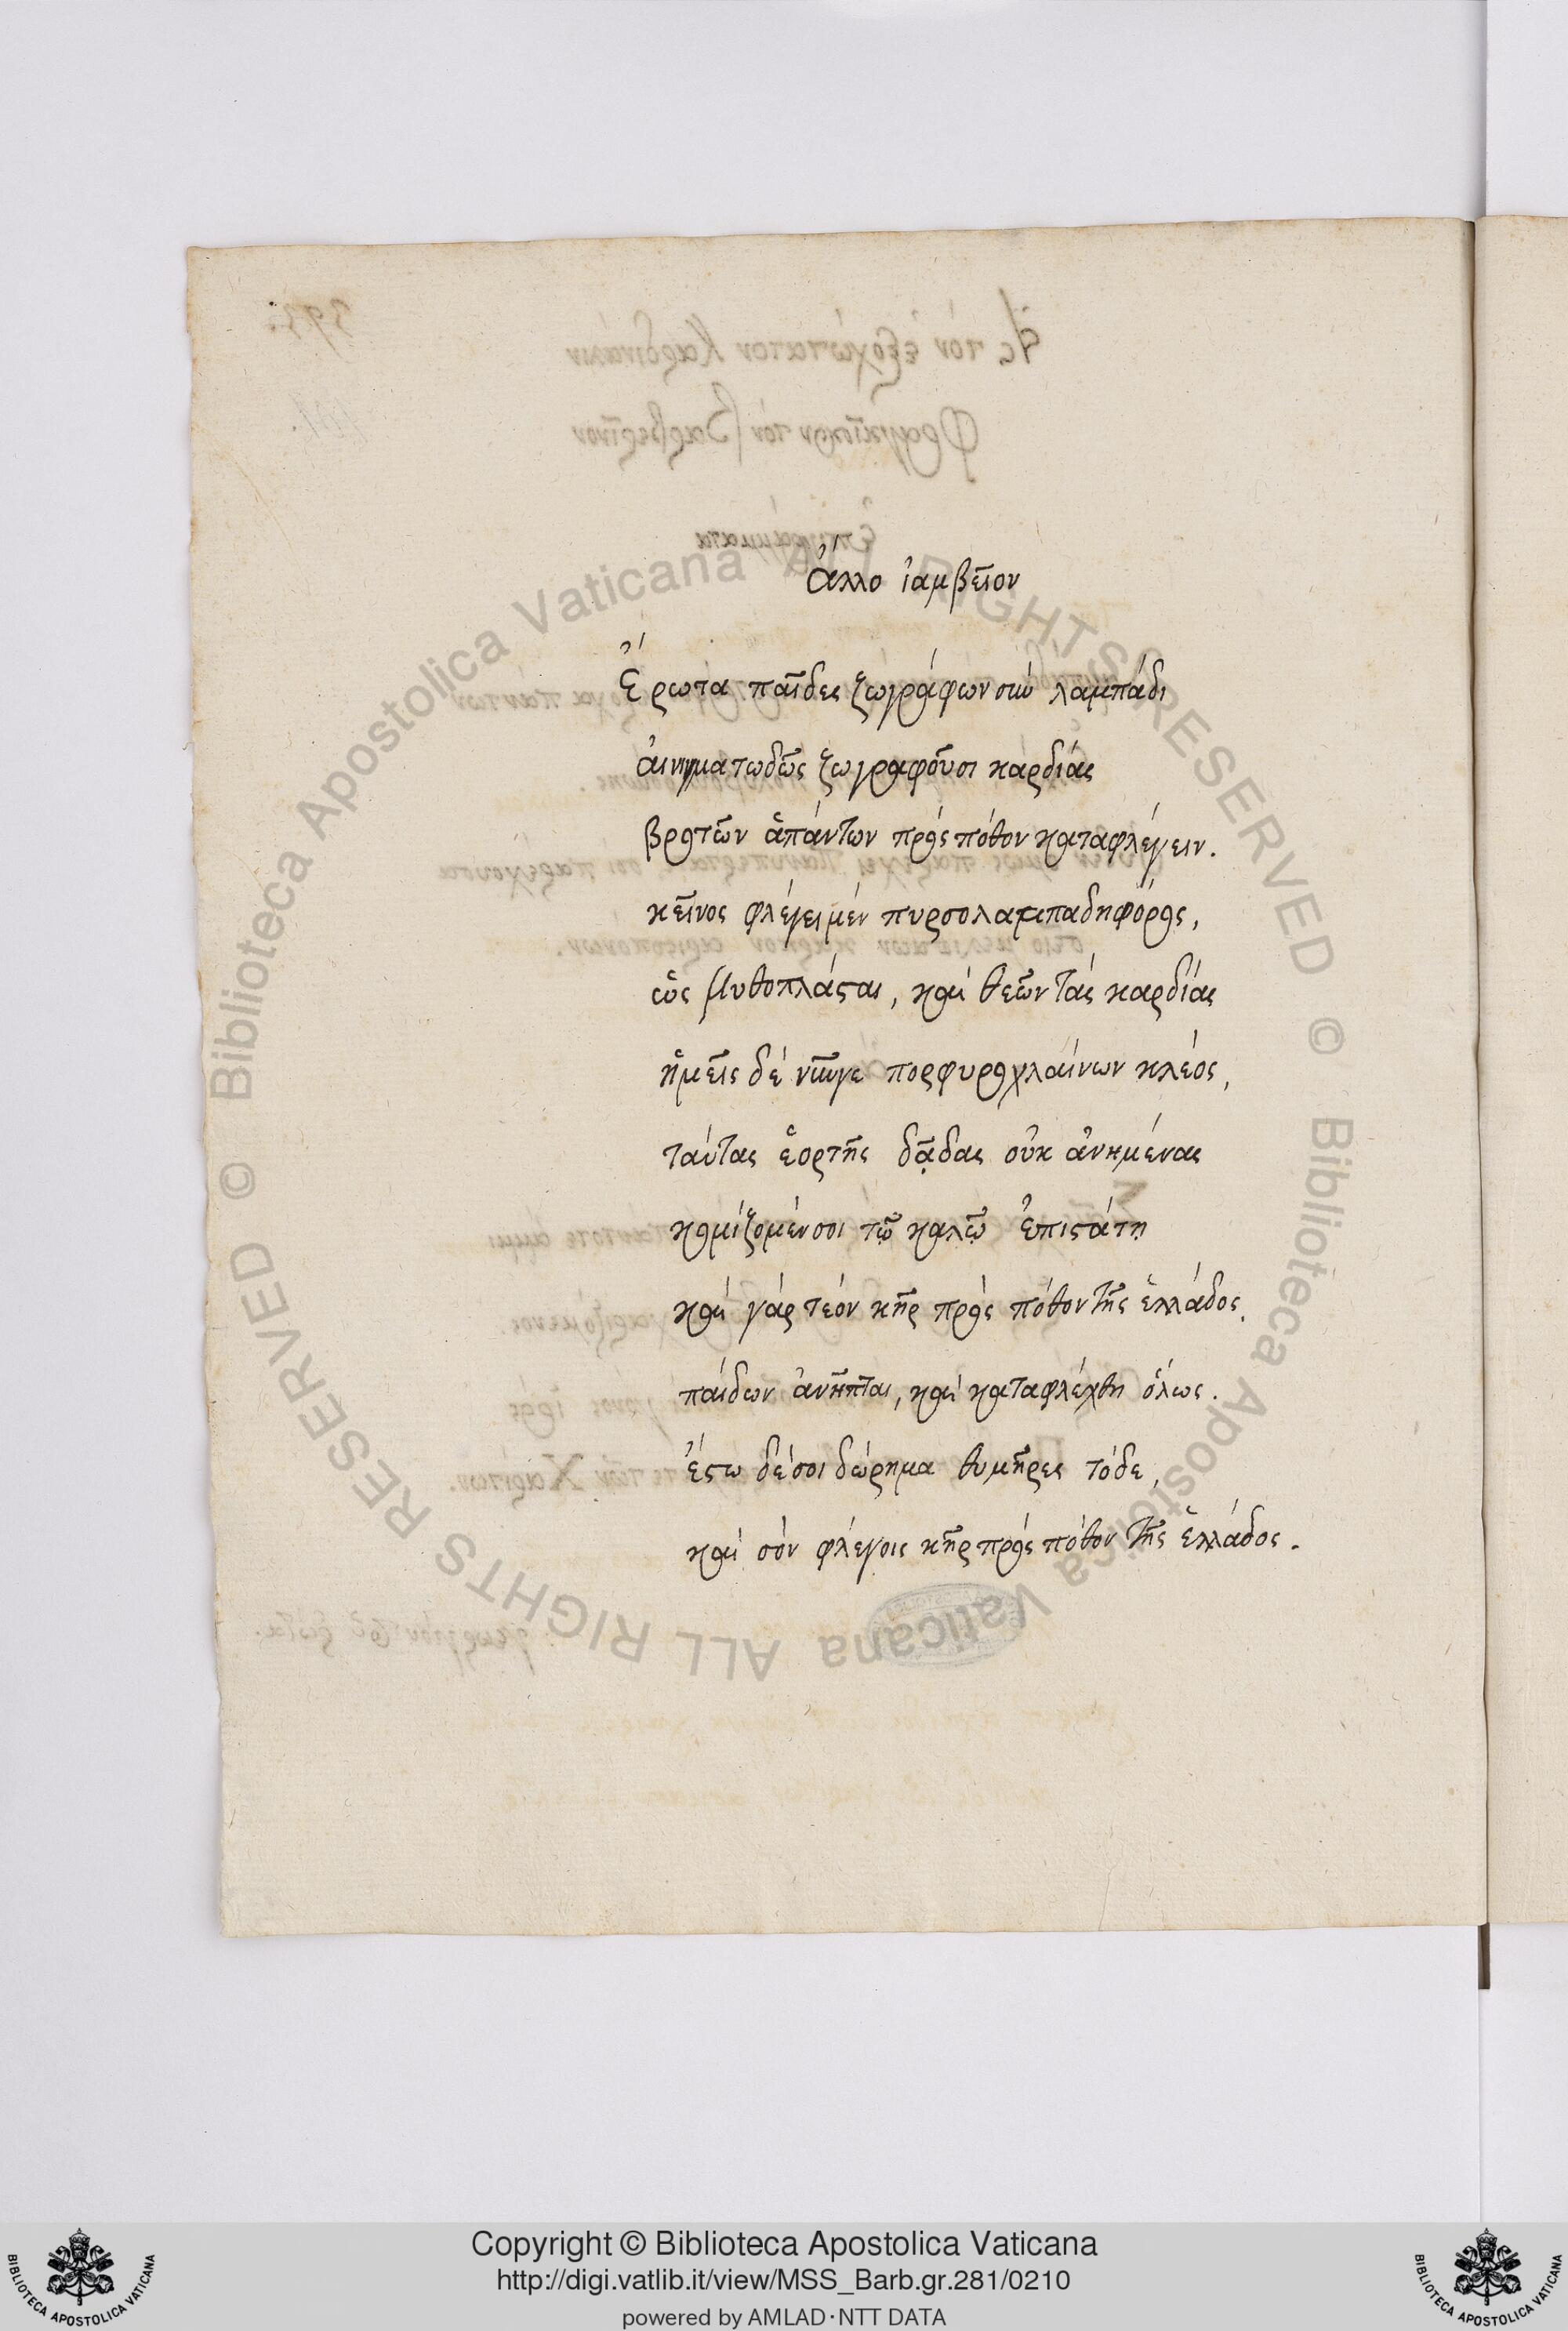 Ἄλλο ἰαμβεῖον
Ἔρωτα παῖδες ζωγράφων σὺν λαμπάδι
αἰνιγματωδῶς ζωγραφοῦσι καρδίας
βροτῶν ἁπάντων πρὸς πόθον καταφλέγειν.
κεῖνος φλέγει μὲν πυρσολαμπαδηφόρος,
ὡς μυθοπλάσται, καὶ θεῶν τὰς καρδίας
ἡμεῖς δὲ νῦν γε πορφυροχλαίνων κλέος,
ταύτας ἑορτῆς δᾷδας οὐκ ἀνημένας
κομίζομέν σοι τῷ καλῷ ἐπιστάτῃ
καὶ γὰρ τεὸν κῆρ πρὸς πόθον τῆς ἑλλάδος.
παίδων ἀνῆπται, καὶ καταφλέχθη ὅλως.
ἔστω δέ σοι δώρημα θυμῆρες τόδε,
καὶ σὸν φλέγοις κῆρ πρὸς πόθον τῆς ἑλλάδος.
Biblioteca Apostolica Vaticana ALL RIGHTS RESERVED ©
Biblioteca Apostolica Vaticana ALL RIGHTS RESERVED ©
Copyright © Biblioteca Apostolica Vaticana
http://digi.vatlib.it/view/MSS_Barb.gr.281/0210
powered by AMLAD·NTT DATA
BIBLIOTECA APOSTOLICA VATICANA
BIBLIOTECA APOSTOLICA VATICANA